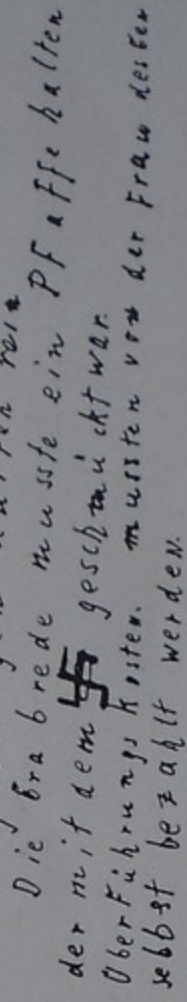 rein
Die Grabrede musste ein PFaFFe halten
der mit dem 卐 geschmückt war.
ÜberFührungs Kosten. mussten von der Frau
sebbst bezahlt werden.